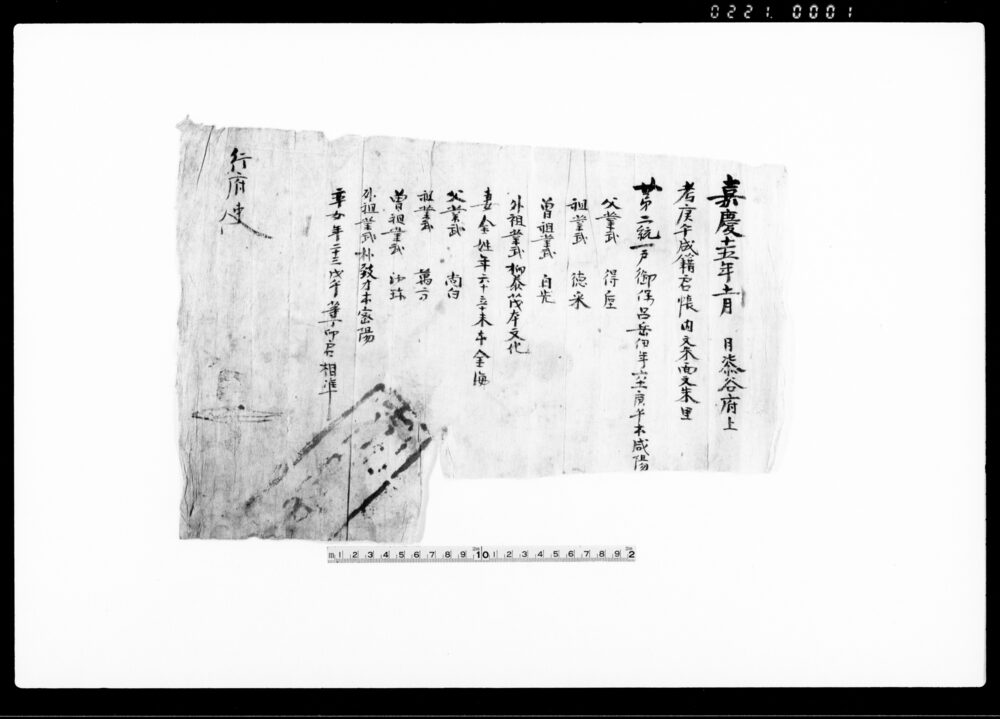 0221. 0001
嘉慶十五年 月 日 柒谷府上
考庚午成籍戶口帳內文朱面文朱里
第二統一戶御保呂岳伊年六十一庚午本咸陽
父業武 得
祖業武 德采
曾祖業武 自先
外祖業武柳泰茂本文化
妻金姓年六十辛未本金海
父業武 尚白
祖業武 萬方
曾祖業武
外祖業武朴致才本密陽
率女年二十三戊午 卯戶相準
行府使
1 2 3 4 5 6 7 8 9 10 1 2 3 4 5 6 7 8 9 2